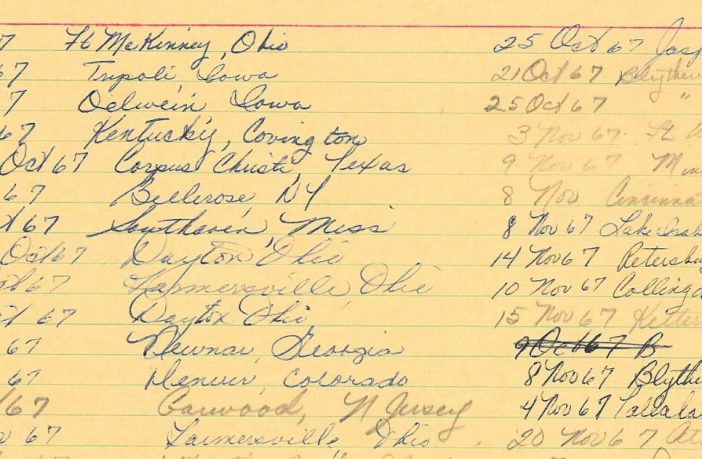 67 Ft McKinney, Ohio 25 Oct 67
67 Tripoli, Iowa 21 Oct 67
7 Oelwein, Iowa 25 Oct 67 "
67 Kentucky, Covington 3 Nov 67 Ft
Oct 67 Corpus Christi, Texas 9 Nov 67
67 Bellerose, NY 8 Nov Cincinnat
67 Southaven, Miss 8 Nov 67 Lake
Oct 67 Dayton, Ohio 14 Nov 67 Petersbu
67 Farmersville, Ohio 10 Nov 67
67 Dayton Ohio 15 Nov 67 Ketter
67 Newnan, Georgia 9 Oct 67 B
67 Denver, Colorado 8 Nov 67 Blythe
67 Garwood, N Jersey 4 Nov 67
67 Farmersville, Ohio 20 Nov 67